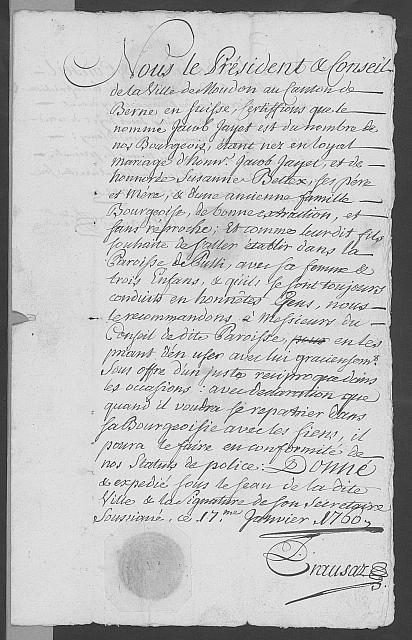 Nous le Président & Conseil
de la Ville de Moudon au Canton de
Berne en Suisse, Certiffions que le
nommé Jacob Jayet est du nombre de
nos Bourgeois, étant nez en loyal
mariage d'honn. Jacob Jayet, et de
honnorée Susanne Bettex, ses père
et Mère, & d'une ancienne famille
Bourgeoise, de bonne extraction, et
sans reproche; Et comme leurdit fils
souhaite de s'aller établir dans la
Paroisse de Pulli, avec sa femme &
trois Enfans, & qu'ils se sont toujours
conduits en honnêtes Gens, nous
le recommandons à Messieurs du
Conseil de dite Paroisse, en les
priant d'en user avec lui gracieusem.t
sous offre d'un juste reciproque dans
les occasions: avec declaration que
quand il voudra se repatrier dans
sa Bourgeoisie avec les siens, il
poura le faire en conformité de
nos Statuts de police: Donné
& expedié sous le seau de la dite
Ville & la Signature de son Secretaire
Soussigné, ce 17.me Janvier 1766